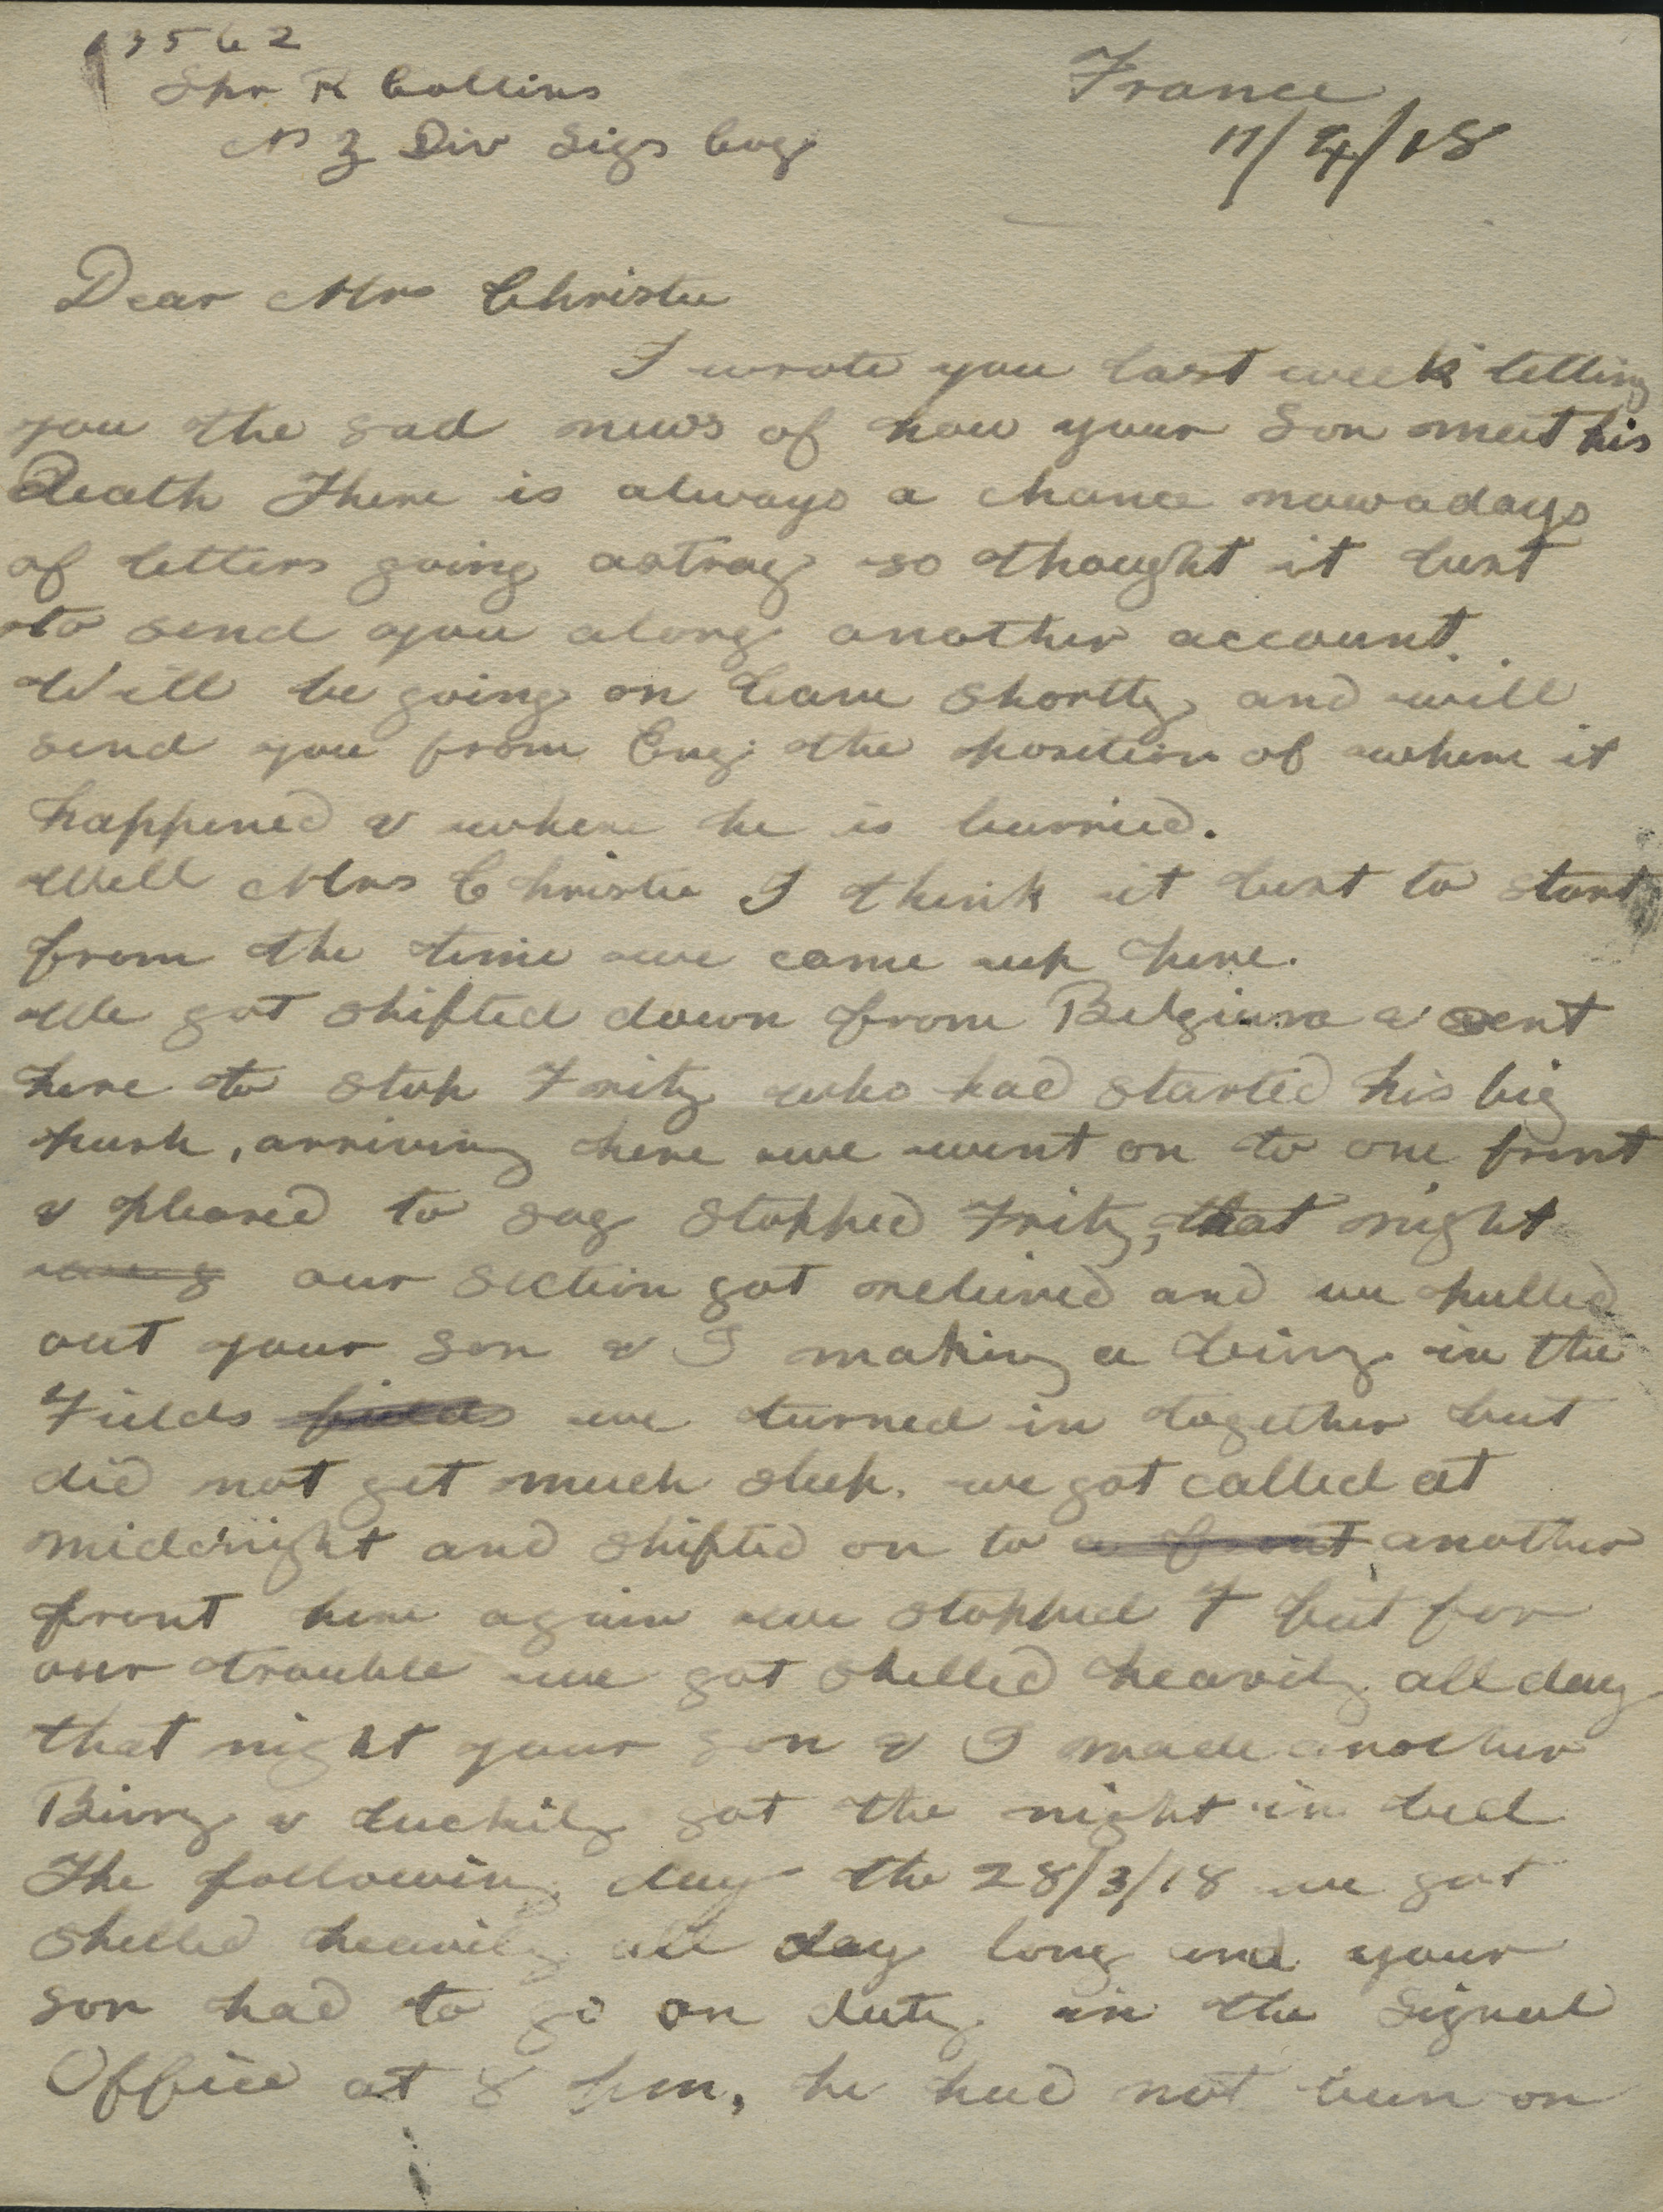 13562
Spr R Collins
N Z Div Sigs Eng
France
17/4/18
Dear Mrs Christie
I wrote you last week telling
you the sad news of how your Son meet his
Death There is always a chance nowadays
of letters going astray so thought it best
to send you along another account.
Will be going on leave shortly and will
send you from Eng: the position of where it
happened & where he is burried.
Well Mrs Christie I think it best to start
from the time we came up here.
We got shifted down from Belgium & sent
here to stop Fritz who had started his big
push, arriving here we went on to one front
& pleased to say stopped Fritz, that night
our section got relieved and we pulled
out your son & I making a bivy in the
Fields fields we turned in together but
did not get much sleep. we got called at
midnight and shifted on to a front another
front here again we stopped F but for
our trouble we got shelled heavily all day
that night your son & I made another
Bivy & luckily got the night in bed
The following day the 28/3/18 we got
shelled heavily all day long and your
son had to go on duty in the Signal
Office at 8 pm, he had not been on